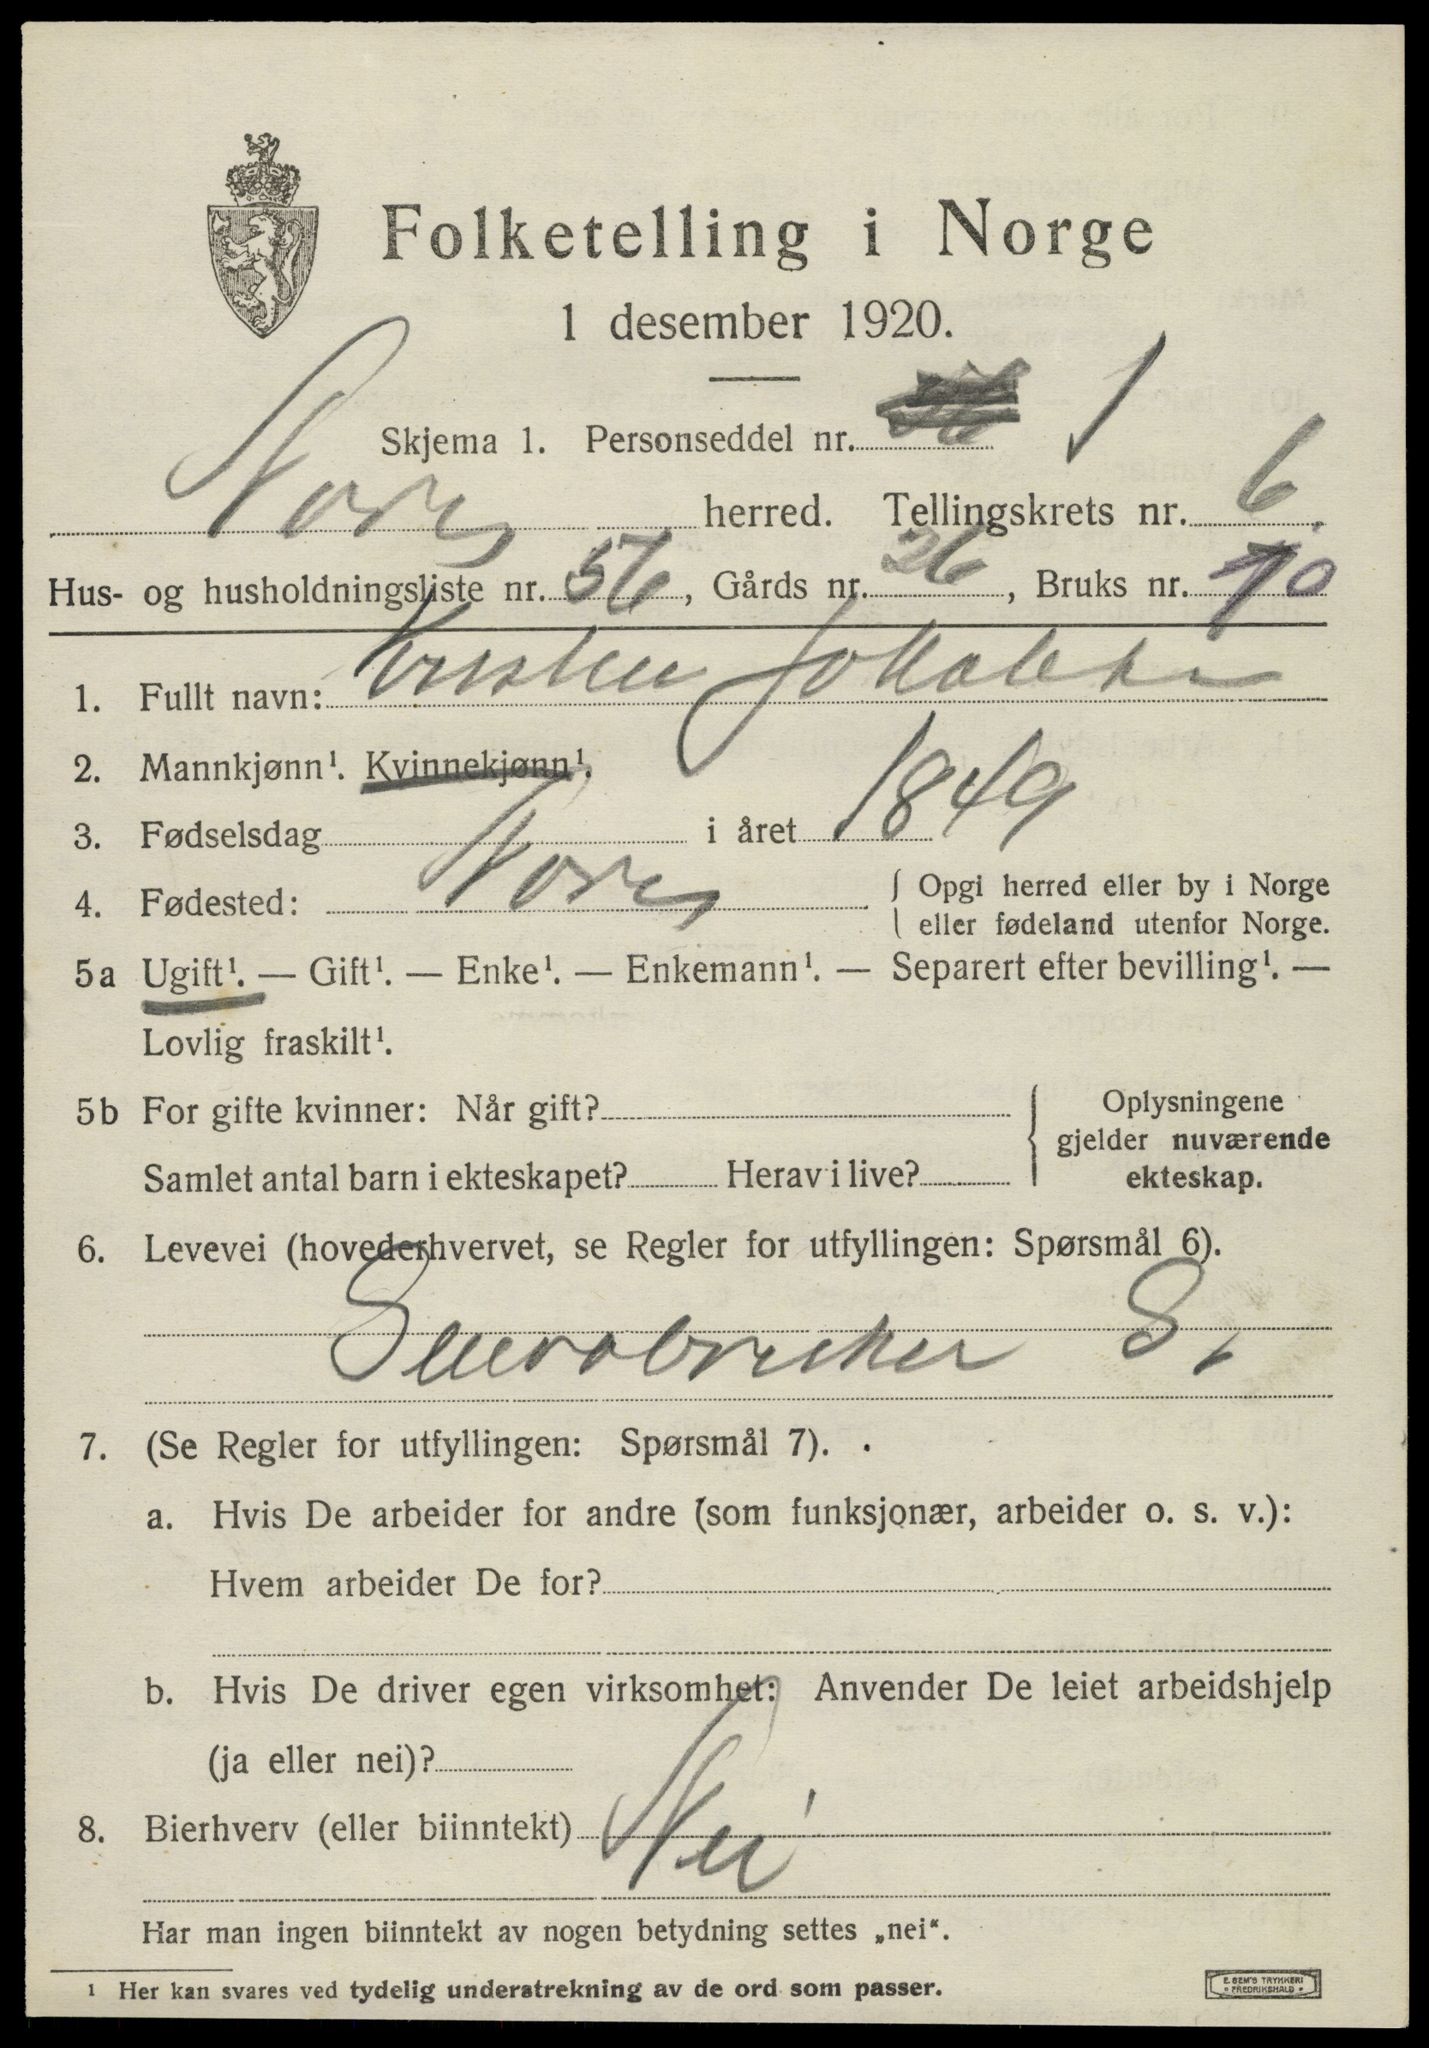 Folketelling i Norge
1 desember 1920.
Skjema 1. Personseddel nr. 1
herred. Tellingskrets nr. 6.
Hus- og husholdningsliste nr. 56, Gårds nr. 26, Bruks nr. 10
1. Fullt navn:
2. Mannkjønn¹. Kvinnekjønn¹.
3. Fødselsdag i året 1849
4. Fødested: { Opgi herred eller by i Norge
eller fødeland utenfor Norge.
5a Ugift¹. — Gift¹. — Enke¹. — Enkemann¹. — Separert efter bevilling¹. —
Lovlig fraskilt¹.
5b For gifte kvinner: Når gift? { Oplysningene
gjelder nuværende
Samlet antal barn i ekteskapet? Herav i live? ekteskap.
6. Levevei (hovederhvervet, se Regler for utfyllingen: Spørsmål 6).
S.
7. (Se Regler for utfyllingen: Spørsmål 7).
a. Hvis De arbeider for andre (som funksjonær, arbeider o. s. v.):
Hvem arbeider De for?
b. Hvis De driver egen virksomhet: Anvender De leiet arbeidshjelp
(ja eller nei)?
8. Bierhverv (eller biinntekt) Nei
Har man ingen biinntekt av nogen betydning settes „nei“.
¹ Her kan svares ved tydelig understrekning av de ord som passer.
E. SEM'S TRYKKERI
FREDRIKSHALD